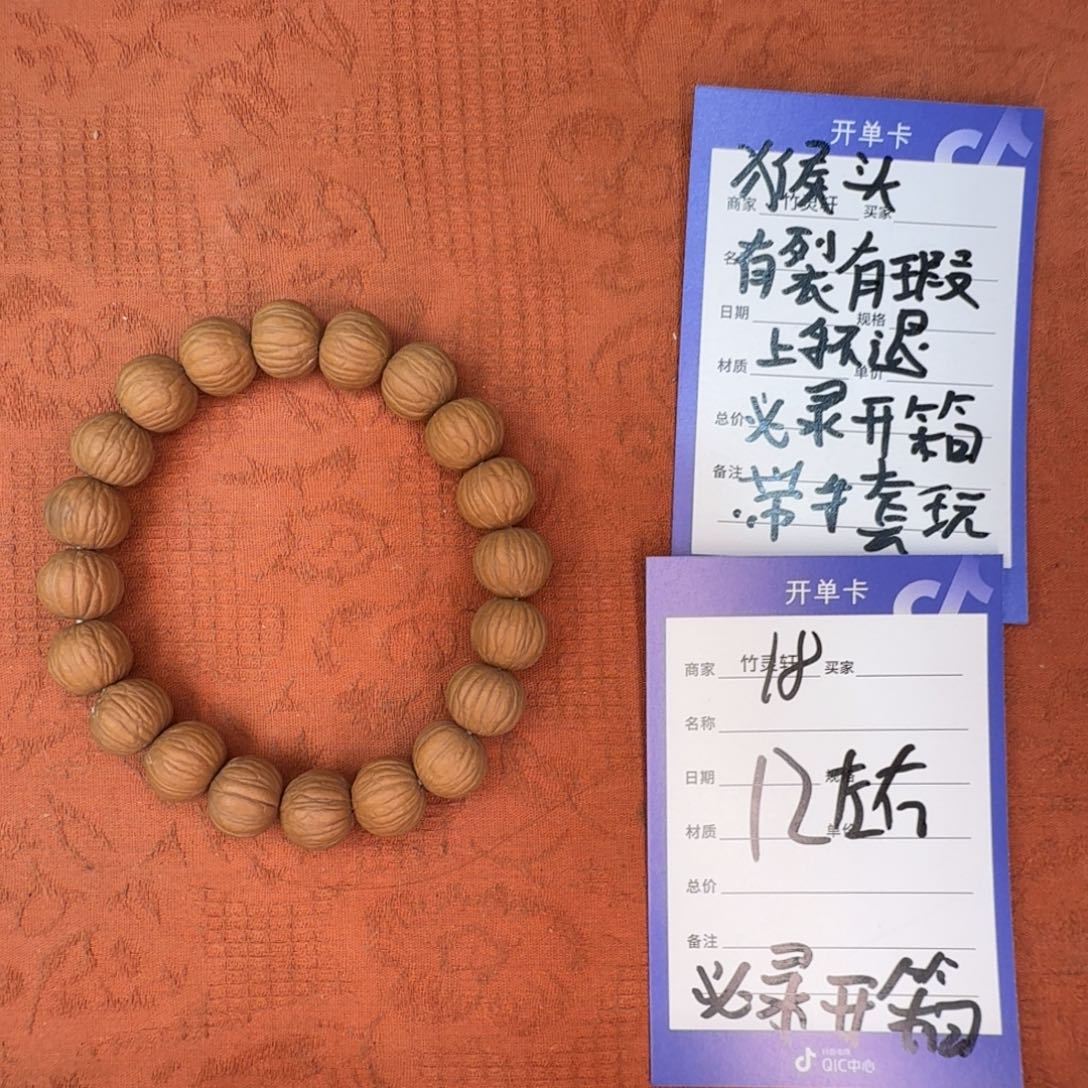 开单卡
猴头
商家 竹灵轩 买家
有裂有瑕
日期 规格
上手不退
材质 单价
总价
必录开箱
备注
带手套玩
开单卡
18
商家 竹灵轩 买家
名称
日期 规格
12左右
材质 单价
总价
备注
必录开箱
抖音电商
QIC中心